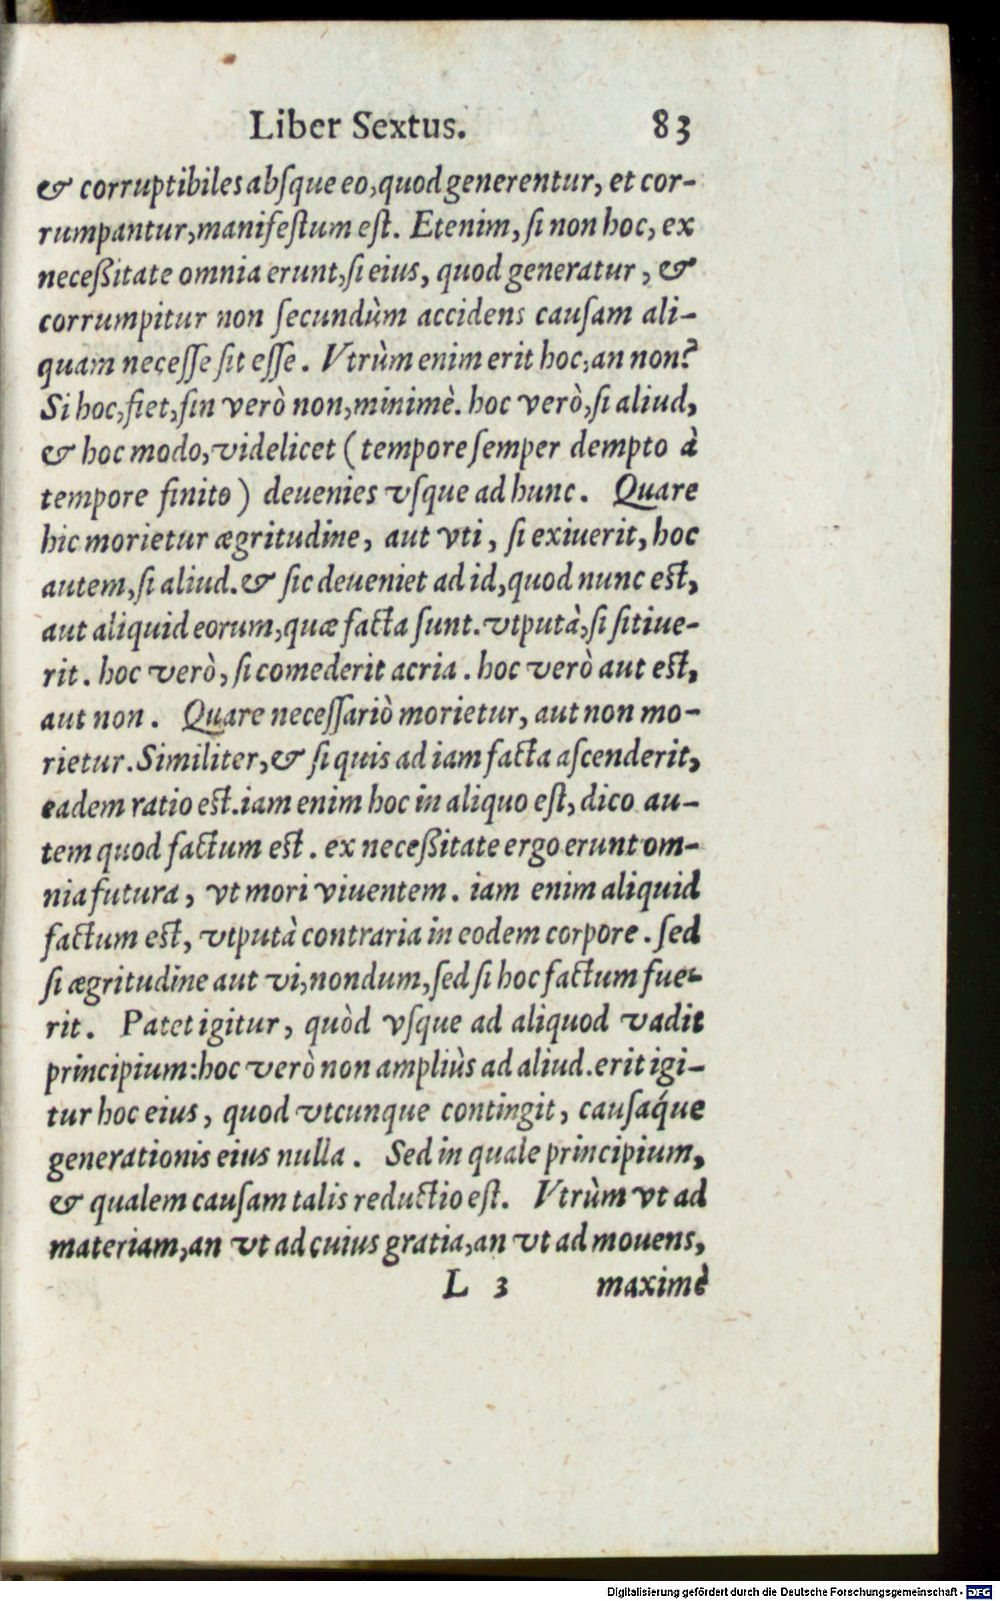 Liber Sextus. 83
& corruptibiles absque eo, quod generentur, et cor-
rumpantur, manifestum est. Etenim, si non hoc, ex
necessitate omnia erunt, si eius, quod generatur, &
corrumpitur non secundùm accidens causam ali-
quam necesse sit esse. Vtrùm enim erit hoc, an non?
Si hoc, fiet, sin verò non, minimè. hoc verò, si aliud,
& hoc modo, videlicet (tempore semper dempto à
tempore finito) deuenies vsque ad hunc. Quare
hic morietur ægritudine, aut vti, si exiuerit, hoc
autem, si aliud. & sic deueniet ad id, quod nunc est,
aut aliquid eorum, quæ facta sunt. vtputà, si sitiue-
rit. hoc verò, si comederit acria. hoc verò aut est,
aut non. Quare necessariò morietur, aut non mo-
rietur. Similiter, & si quis ad iam facta ascenderit,
eadem ratio est. iam enim hoc in aliquo est, dico au-
tem quod factum est. ex necessitate ergo erunt om-
nia futura, vt mori viuentem. iam enim aliquid
factum est, vtputà contraria in eodem corpore. sed
si ægritudine aut vi, nondum, sed si hoc factum fue-
rit. Patet igitur, quòd vsque ad aliquod vadit
principium: hoc verò non ampliùs ad aliud. erit igi-
tur hoc eius, quod vtcunque contingit, causaq́ue
generationis eius nulla. Sed in quale principium,
& qualem causam talis reductio est. Vtrùm vt ad
materiam, an vt ad cuius gratia, an vt ad mouens,
L 3 maximè
Digitalisierung gefördert durch die Deutsche Forschungsgemeinschaft - DFG